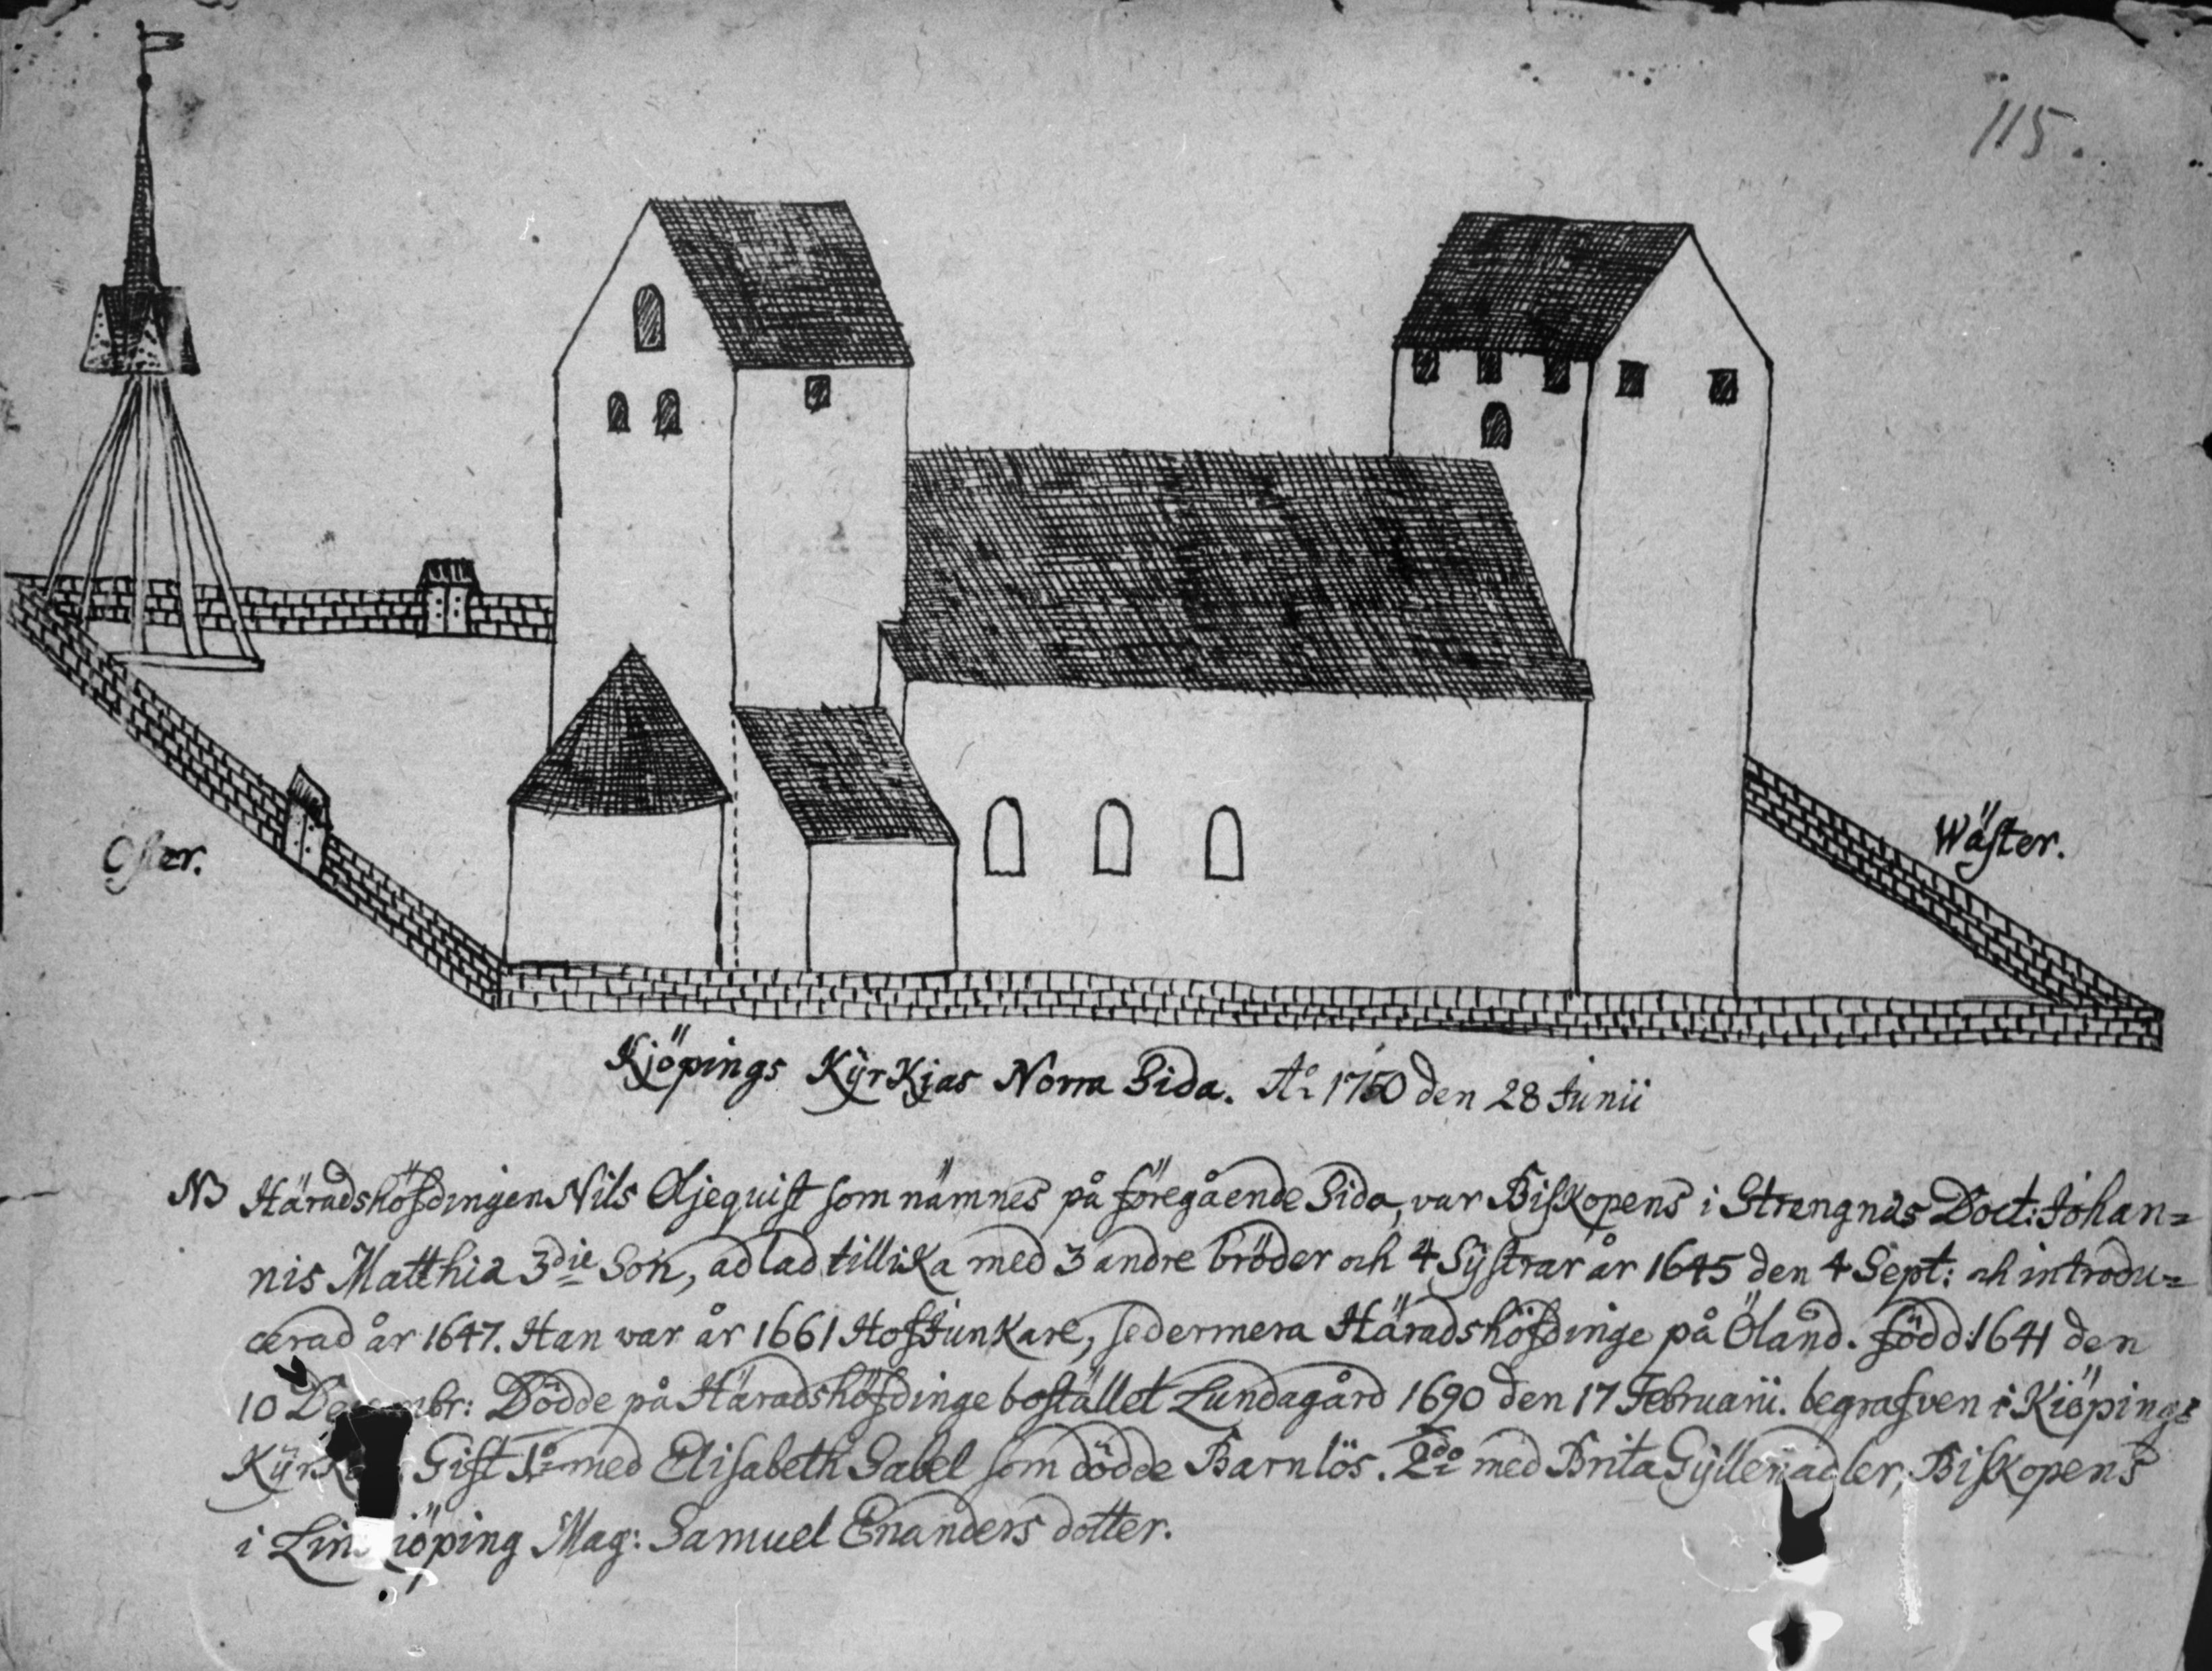 115.
Öster.
Wäster.
Kjöpings Kÿrkjas Norra Sida. Aº 1750 den 28 Junii
NB Häradshöfdingen Nils Oljequist som nämnes på föregående Sida, var Biskopens i Strengnäs Doct: Johan=
nis Matthiæ 3die Son, adlad tillika med 3 andre bröder och 4 Sÿstrar år 1645 den 4 Sept: och introdu=
cerad år 1647. Han war år 1661 HofJunkare, sedermera Häradshöfdinge på Öland. född: 1641 den
10 Decembr: Dödde på Häradshöfdinge bostället Lundagård 1690 den 17 Februarii. begrafven i Kiöpings
Gift 1º med Elisabeth Sabel som dödde Barnlös. 2do med Brita Gÿllenadler, Biskopens
i Linkiöping Mag: Samuel Enanders dotter.